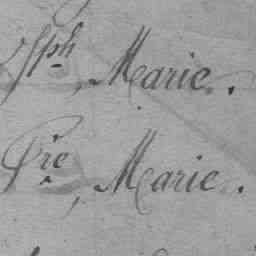 ph, Marie.
rie, Marie.